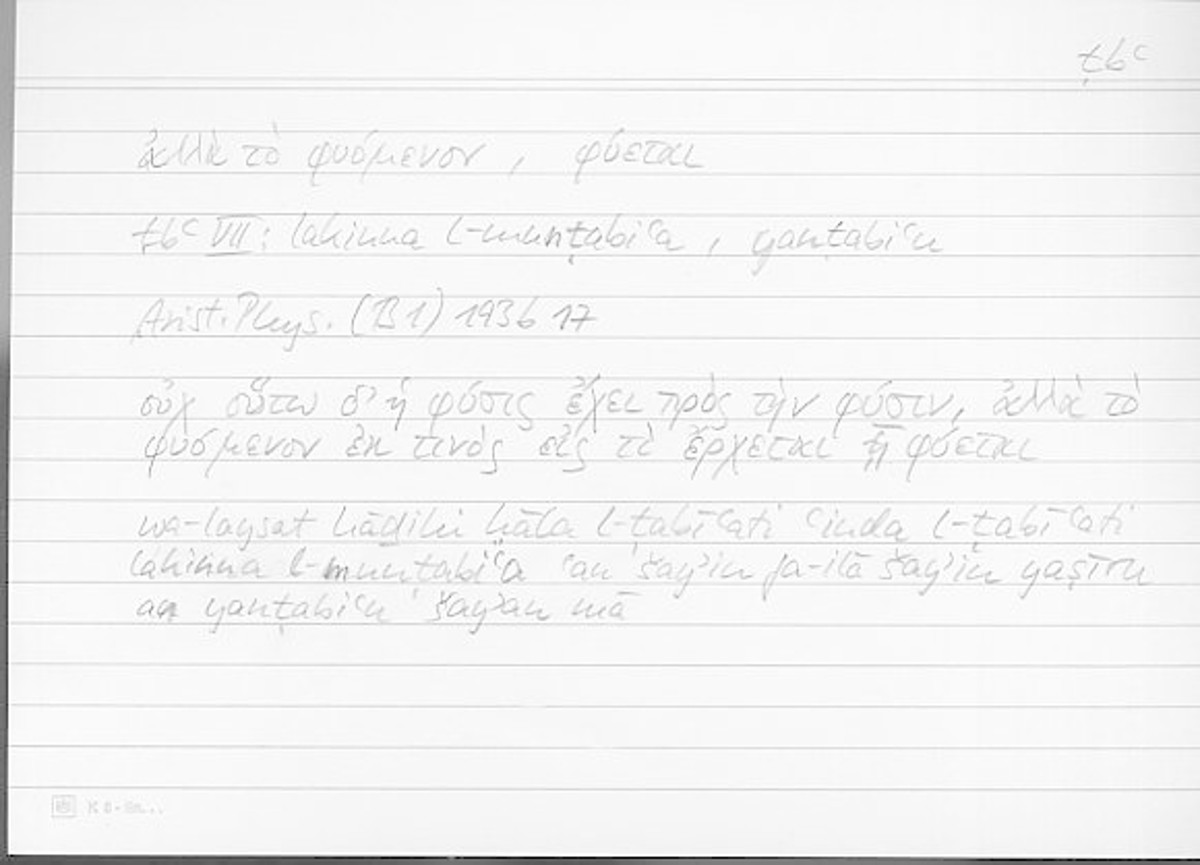 ṭbʿ
ἀλλὰ τὸ φυόμενον, φύεται
ṭbʿ VII: lākinna l-munṭabiʿa, yanṭabiʿu
Arist. Phys. (B1) 193b 17
οὐχ οὕτω δ' ἡ φύσις ἔχει πρὸς τὴν φύσιν, ἀλλὰ τὸ
φυόμενον ἐκ τινὸς εἰς τὶ ἔρχεται ᾗ φύεται
wa-laysat hāḏihi ḥāla l-ṭabīʿati ʿinda l-ṭabīʿati
lākinna l-munṭabiʿa ʿan šayʾin fa-ilā šayʾin yaṣīru
aw yanṭabiʿu šayʾan mā